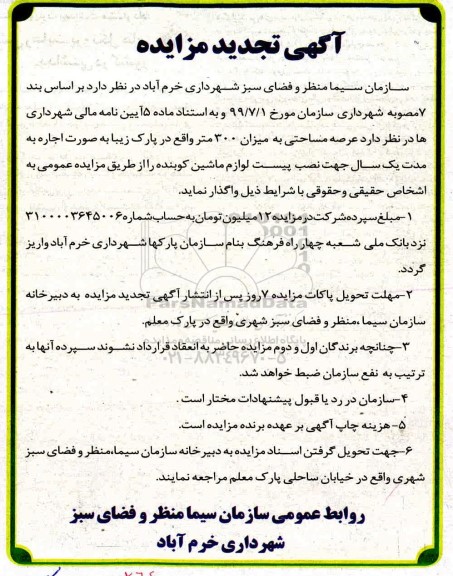 آگهی تجدید مزایده
سازمان سیما منظر و فضای سبز شهرداری خرم آباد در نظر دارد بر اساس بند
۷مصوبه شهرداری سازمان مورخ ۹۹/۷/۱ و به استناد ماده ۵آیین نامه مالی شهرداری
ها در نظر دارد عرصه مساحتی به میزان ۳۰۰ متر واقع در پارک زیبا به صورت اجاره به
مدت یک سال جهت نصب پیست لوازم ماشین کوبنده را از طریق مزایده عمومی به
اشخاص حقیقی وحقوقی با شرایط ذیل واگذار نماید.
۱-مبلغ سپرده شرکت در مزایده ۱۲میلیون تومان به حساب شماره ۳۱۰۰۰۰۳۶۴۵۰۰۶
نزد بانک ملی شعبه چهار راه فرهنگ بنام سازمان پارکها شهرداری خرم آباد واریز
گردد.
۲-مهلت تحویل پاکات مزایده ۷روز پس از انتشار آگهی تجدید مزایده به دبیرخانه
سازمان سیما ،منظر و فضای سبز شهری واقع در پارک معلم.
۳-چنانچه برندگان اول و دوم مزایده حاضر به انعقاد قرارداد نشوند سپرده آنها به
ترتیب به نفع سازمان ضبط خواهد شد.
۴-سازمان در رد یا قبول پیشنهادات مختار است .
۵- هزینه چاپ آگهی بر عهده برنده مزایده است.
۶-جهت تحویل گرفتن اسناد مزایده به دبیرخانه سازمان سیما،منظر و فضای سبز
شهری واقع در خیابان ساحلی پارک معلم مراجعه نمایند.
روابط عمومی سازمان سیما منظر و فضای سبز
شهرداری خرم آباد
ParsNamadData